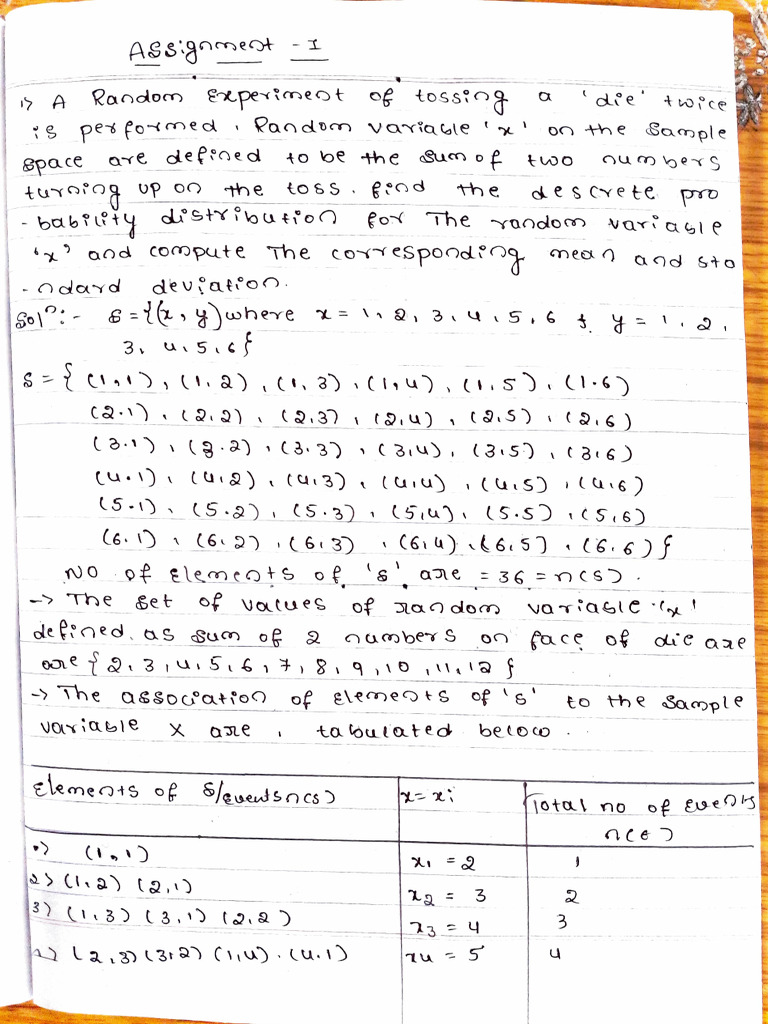 Assignment - I
1) A Random Experiment of tossing a 'die' twice
is performed, Random variable 'x' on the Sample
space are defined to be the sum of two numbers
turning up on the toss. find the descrete pro
-bability distribution for The random variable
'x' and compute The corresponding mean and sta
-ndard deviation.
Solⁿ:- S = {(x, y) where x = 1, 2, 3, 4, 5, 6 & y = 1, 2,
3, 4, 5, 6}
S = { (1,1), (1,2), (1,3), (1,4), (1,5), (1,6)
(2,1), (2,2), (2,3), (2,4), (2,5), (2,6)
(3,1), (3,2), (3,3), (3,4), (3,5), (3,6)
(4,1), (4,2), (4,3), (4,4), (4,5), (4,6)
(5,1), (5,2), (5,3), (5,4), (5,5), (5,6)
(6,1), (6,2), (6,3), (6,4), (6,5), (6,6) }
NO of Elements of 's' are = 36 = n(s).
-> The set of values of random variable 'x'
defined as sum of 2 numbers on face of die are
are { 2, 3, 4, 5, 6, 7, 8, 9, 10, 11, 12 }
-> The association of Elements of 's' to the sample
variable X are, tabulated below.
Elements of S/events n(s) x = xi Total no of Events
n(e)
1) (1,1) x1 = 2 1
2) (1,2) (2,1) x2 = 3 2
3) (1,3) (3,1) (2,2) x3 = 4 3
(2,3) (3,2) (1,4), (4,1) x4 = 5 4